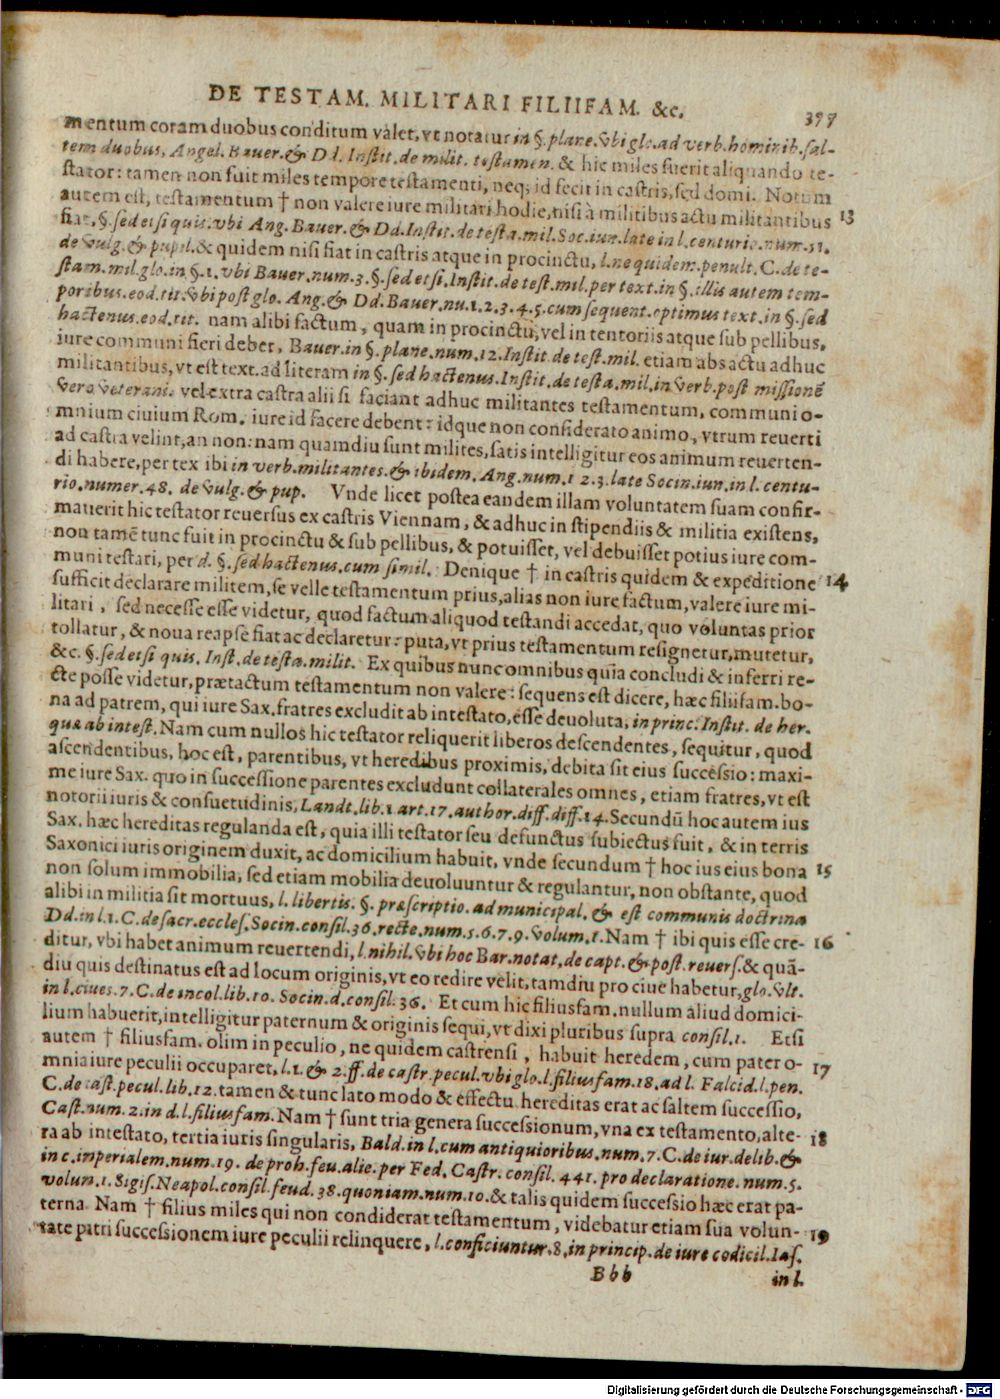 DE TESTAM. MILITARI FILIIFAM. &c. 377
mentum coram duobus conditum valet, vt notatur in §. plane. vbi glo. ad verb. hominib. sal-
tem duobus, Angel. Bauer. & Dd. Instit. de milit. testamen. & hic miles fuerit aliquando te-
stator: tamen non fuit miles tempore testamenti, neq; id fecit in castris, sed domi. Notum
autem est, testamentum † non valere iure militari hodie, nisi à militibus actu militantibus 13
fiat, §. sed etsi quis. vbi Ang. Bauer. & Dd. Instit. de testa. mil. Soc. iun. late in l. centurio. num. 51.
de vulg. & pupil. & quidem nisi fiat in castris atque in procinctu, l. ne quidem. penult. C. de te-
stam. mil. glo. in §. 1. vbi Bauer. num. 3. §. sed etsi. Instit. de test. mil. per text. in §. illis autem tem-
poribus. eod. tit. vbi post glo. Ang. & Dd. Bauer. nu. 1. 2. 3. 4. 5. cum sequent. optimus text. in §. sed
hactenus. eod. tit. nam alibi factum, quam in procinctu, vel in tentoriis atque sub pellibus,
iure communi fieri debet, Bauer. in §. plane. num. 12. Instit. de test. mil. etiam abs actu adhuc
militantibus, vt est text. ad literam in §. sed hactenus. Instit. de testa. mil. in verb. post missionē
vero veterani. vel extra castra alii si faciant adhuc militantes testamentum, communi o-
mnium ciuium Rom. iure id facere debent: idque non considerato animo, vtrum reuerti
ad castra velint, an non: nam quamdiu sunt milites, satis intelligitur eos animum reuerten-
di habere, per tex ibi in verb. militantes. & ibidem. Ang. num. 1 2. 3. late Socin. iun. in l. centu-
rio. numer. 48. de vulg. & pup. Vnde licet postea eandem illam voluntatem suam confir-
mauerit hic testator reuersus ex castris Viennam, & adhuc in stipendiis & militia existens,
non tamē tunc fuit in procinctu & sub pellibus, & potuisset, vel debuisset potius iure com-
muni testari, per d. §. sed hactenus. cum simil. Denique † in castris quidem & expeditione 14
sufficit declarare militem, se velle testamentum prius, alias non iure factum, valere iure mi-
litari, sed necesse esse videtur, quod factum aliquod testandi accedat, quo voluntas prior
tollatur, & noua reapse fiat ac declaretur: puta, vt prius testamentum resignetur, mutetur,
&c. §. sed etsi quis. Inst. de testa. milit. Ex quibus nunc omnibus quia concludi & inferri re-
cte posse videtur, prætactum testamentum non valere: sequens est dicere, hæc filiifam. bo-
na ad patrem, qui iure Sax. fratres excludit ab intestato, esse deuoluta, in princ. Instit. de her.
quæ ab intest. Nam cum nullos hic testator reliquerit liberos descendentes, sequitur, quod
ascendentibus, hoc est, parentibus, vt heredibus proximis, debita sit eius successio: maxi-
me iure Sax. quo in successione parentes excludunt collaterales omnes, etiam fratres, vt est
notorii iuris & consuetudinis, Landt. lib. 1. art. 17. author. diff. diff. 14. Secundū hoc autem ius
Sax. hæc hereditas regulanda est, quia illi testator seu defunctus subiectus fuit, & in terris
Saxonici iuris originem duxit, ac domicilium habuit, vnde secundum † hoc ius eius bona 15
non solum immobilia, sed etiam mobilia deuoluuntur & regulantur, non obstante, quod
alibi in militia sit mortuus, l. libertis. §. præscriptio. ad municipal. & est communis doctrina
Dd. in l. 1. C. de sacr. eccles. Socin. consil. 36. recte. num. 5. 6. 7. 9. volum. 1. Nam † ibi quis esse cre- 16
ditur, vbi habet animum reuertendi, l. nihil. vbi hoc Bar. notat, de capt. & post. reuers. & quā-
diu quis destinatus est ad locum originis, vt eo redire velit, tamdiu pro ciue habetur, glo. vlt.
in l. ciues. 7. C. de incol. lib. 10. Socin. d. consil. 36. Et cum hic filiusfam. nullum aliud domici-
lium habuerit, intelligitur paternum & originis sequi, vt dixi pluribus supra consil. 1. Etsi
autem † filiusfam. olim in peculio, ne quidem castrensi, habuit heredem, cum pater o- 17
mnia iure peculii occuparet, l. 1. & 2. ff. de castr. pecul. vbi glo. l. filiusfam. 18. ad l. Falcid. l. pen.
C. de cast. pecul. lib. 12. tamen & tunc lato modo & effectu hereditas erat ac saltem successio,
Cast. num. 2. in d. l. filiusfam. Nam † sunt tria genera successionum, vna ex testamento, alte- 18
ra ab intestato, tertia iuris singularis, Bald. in l. cum antiquioribus. num. 7. C. de iur. delib. &
in c. imperialem. num. 19. de proh. feu. alie. per Fed. Castr. consil. 441. pro declaratione. num. 5.
volum. 1. Sigis. Neapol. consil. feud. 38. quoniam. num. 10. & talis quidem successio hæc erat pa-
terna. Nam † filius miles qui non condiderat testamentum, videbatur etiam sua volun- 19
tate patri successionem iure peculii relinquere, l. conficiuntur. 8. in princip. de iure codicil. Ias.
Bbb in l.
Digitalisierung gefördert durch die Deutsche Forschungsgemeinschaft - DFG